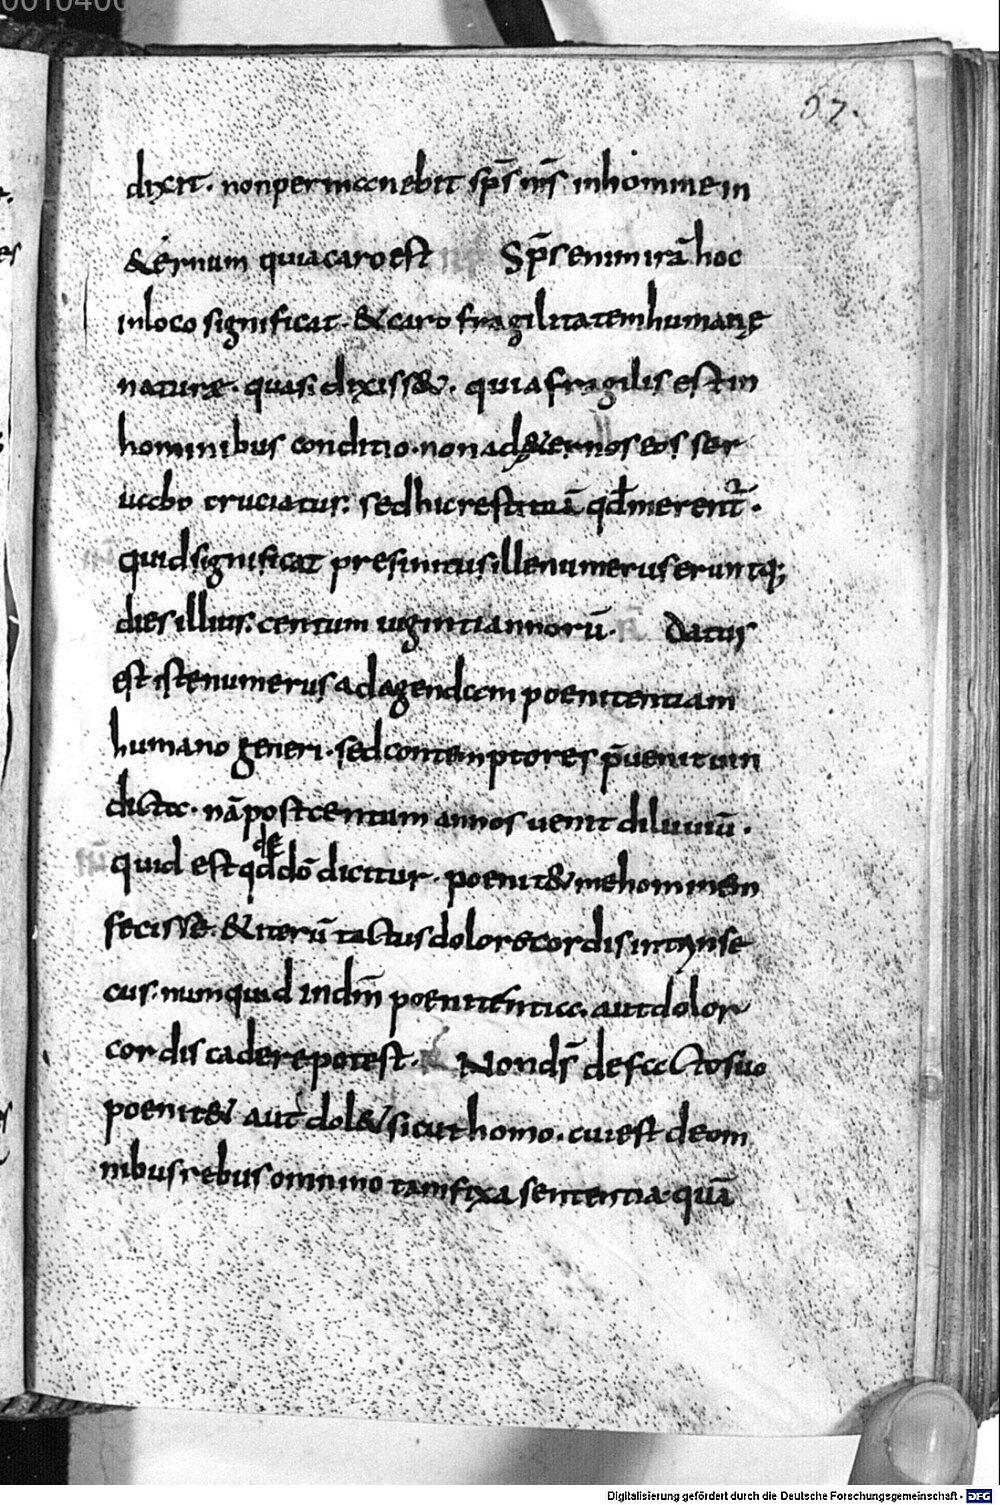 0010400
67.
dixit. non permanebit sp̄s m̄s in homine in
&ernum quia caro est Sp̄s enim irā hoc
in loco significat. & caro fragilitatem humanę
naturę. quasi dixiss&. quia fragilis est in
hominibus conditio. non ad &ernos eos ser
uabo cruciatus. sed hic restituā qd̄ merent᷑.
quid significat prefinitus ille numerus erunt q;
dies illius. centum uiginti annorū. Datus
est iste numerus ad agendam poenitentiam
humano generi. sed contemptores p̄uenit uin
dicta. nā post centum annos uenit diluuiū.
quid est qd̄ de dō dicitur. poenit& me hominem
fecisse. & iterū tactus dolore cordis intrinse
cus. numquid in dm̄ poenitentia. aut dolor
cordis cadere potest. Non ds̄ de facto suo
poenit& aut dol& sicut homo. cui est de om
nibus rebus omnino tam fixa sententia. quā
Digitalisierung gefördert durch die Deutsche Forschungsgemeinschaft - DFG